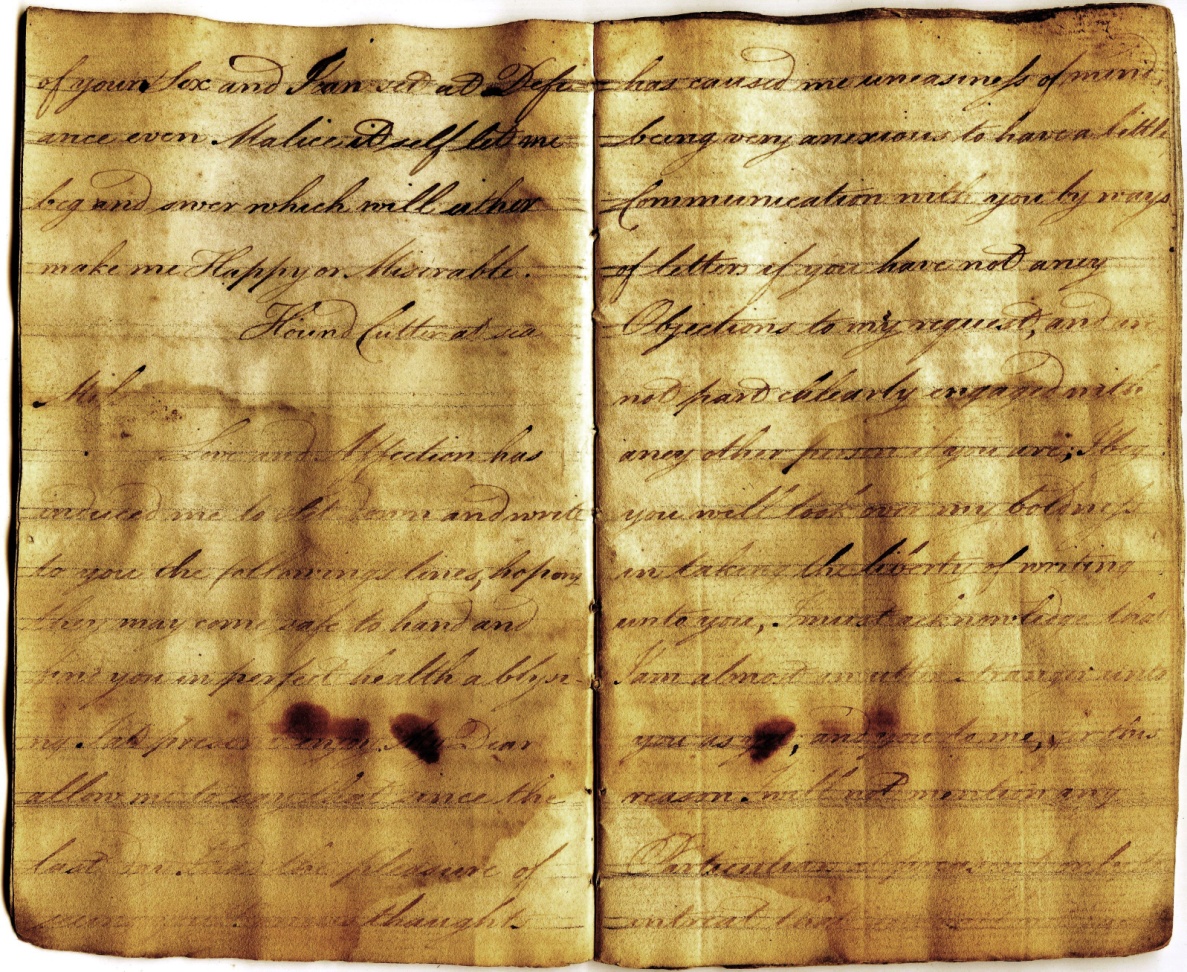 of your Sex and I can set at Defi
ance even Malice itself let me
beg and swer which will either
make me Happy or Miserable.
Hound Cutter at sea
Miss
Love and Affection has
induced me to sit down and write
to you the followings lines, hoping
they may come safe to hand and
find you in perfect health a blyssi-
ng I at present enjoy Dear
allow me to say that since the
last time I had the pleasure of
thoughts
has caused me uneasiness of mind,
being very anexious to have a little
Communication with you by ways
of letters if you have not aney
Objections to my request, and in
not partcularly engaged with
aney other person if you are; I beg
you will look over my boldness
in taking the liberty of writing
unto you, I must acknowledge that
I am almost an utter stranger unto
you as yet, and you to me, for this
reason I will not mention any
Particulars at present only
intreat that